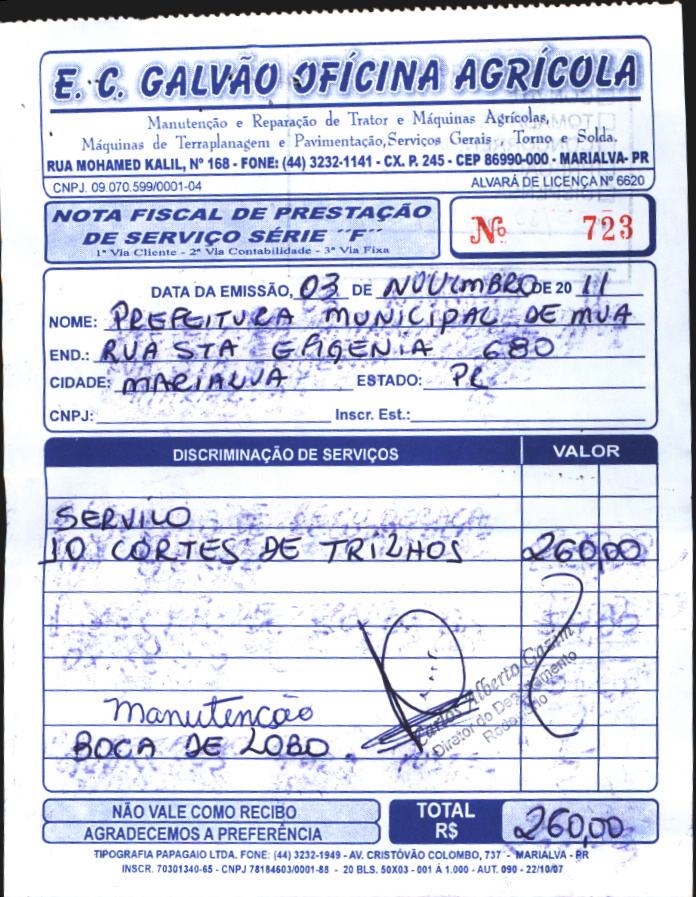 E. C. GALVÃO OFÍCINA AGRÍCOLA
Manutenção e Reparação de Trator e Máquinas Agrícolas,
Máquinas de Terraplanagem e Pavimentação,Serviços Gerais - Torno e Solda.
RUA MOHAMED KALIL, Nº 168 - FONE: (44) 3232-1141 - CX. P. 245 - CEP 86990-000 - MARIALVA- PR
CNPJ. 09.070.599/0001-04 ALVARÁ DE LICENÇA Nº 6620
NOTA FISCAL DE PRESTAÇÃO
DE SERVIÇO SÉRIE ´´F´´
1ª Via Cliente - 2ª Via Contabilidade - 3ª Via Fixa
Nº 723
DATA DA EMISSÃO, 03 DE NOVEMBRO DE 20 11
NOME: PREFEITURA MUNICIPAL DE MUA
END.: RUA STA EFIGENIA 680
CIDADE: MARIALVA ESTADO: PR
CNPJ: Inscr. Est.:
DISCRIMINAÇÃO DE SERVIÇOS VALOR
SERVIÇO
10 CORTES DE TRILHOS 260,00
Carlos Alberto
Diretor do Departamento
Rodoviário
Manutenção
BOCA DE LOBO
NÃO VALE COMO RECIBO
AGRADECEMOS A PREFERÊNCIA
TOTAL
R$ 260,00
TIPOGRAFIA PAPAGAIO LTDA. FONE: (44) 3232-1949 - AV. CRISTÓVÃO COLOMBO, 737 - MARIALVA - PR
INSCR. 70301340-65 - CNPJ 78184603/0001-88 - 20 BLS. 50X03 - 001 Á 1.000 - AUT. 090 - 22/10/07